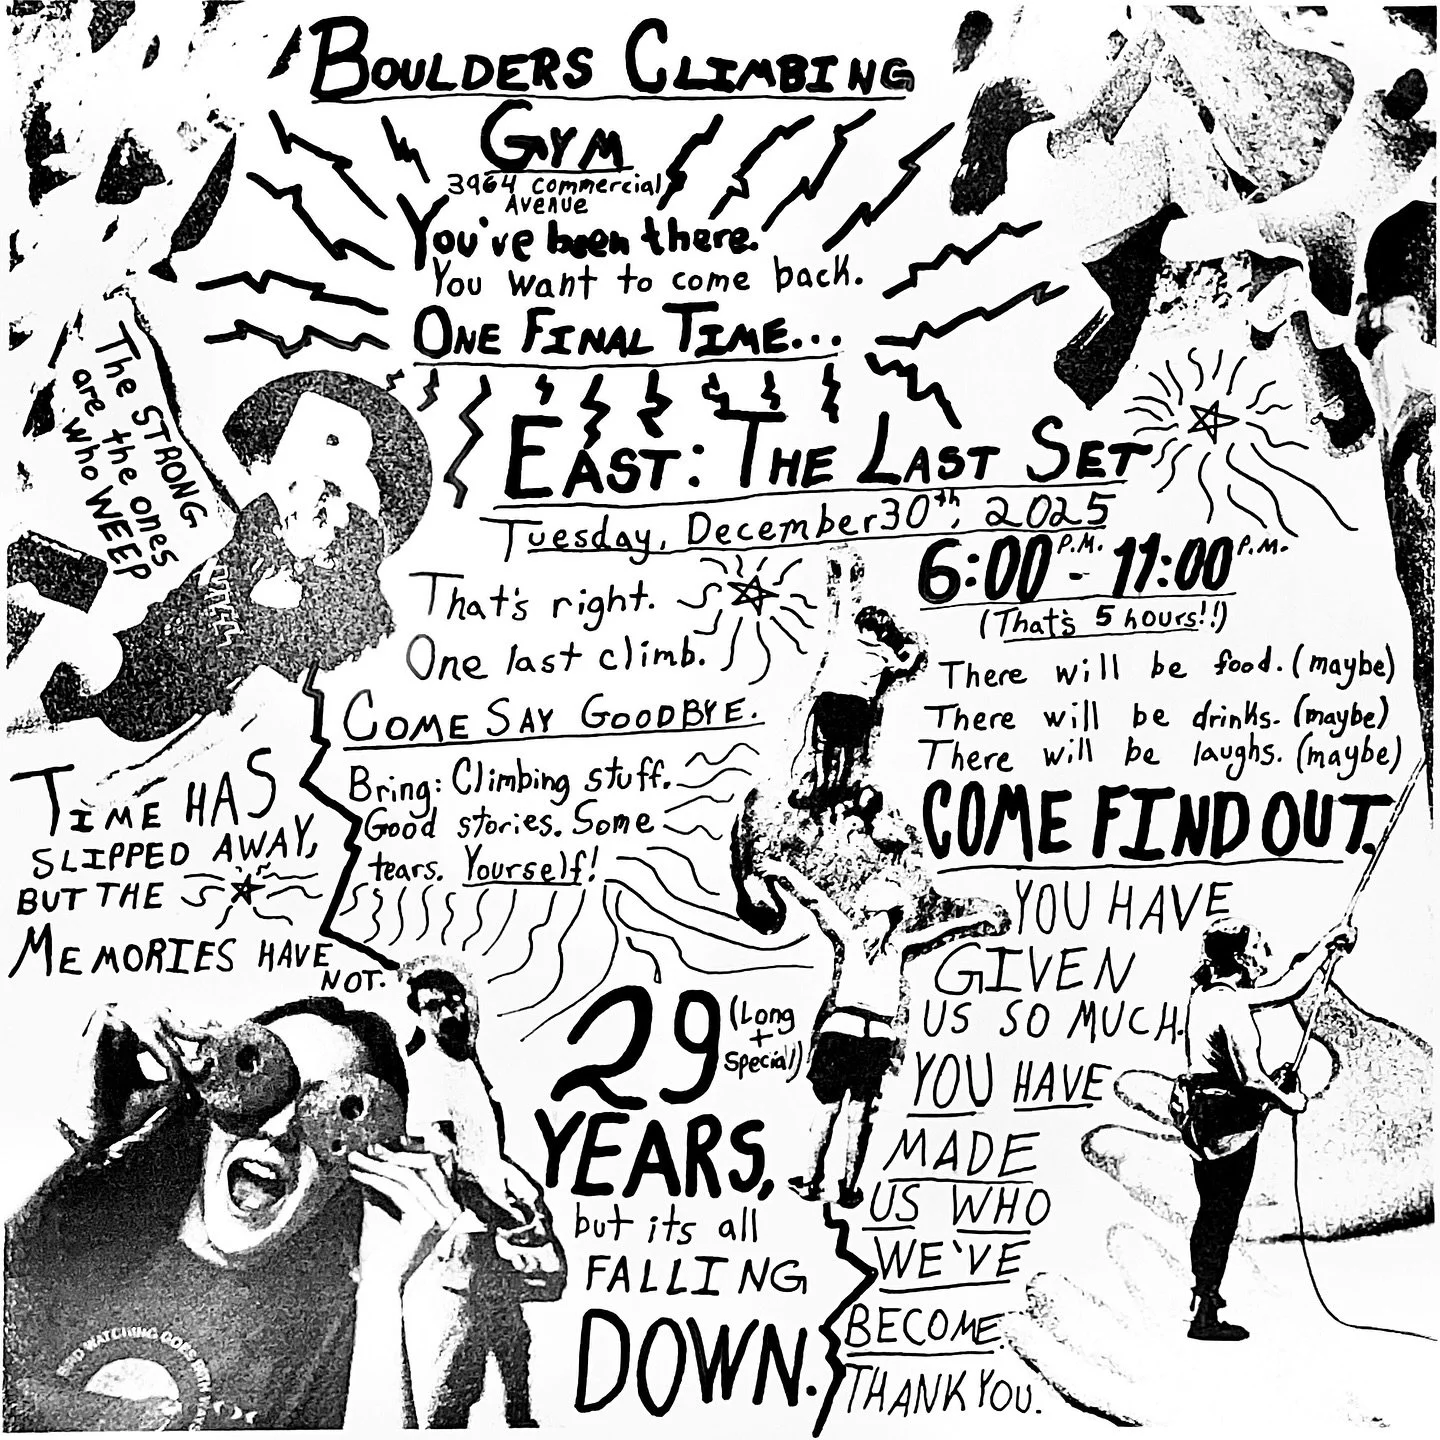 BOULDERS CLIMBING
GYM
3964 commercial
AVENUE
You've been there.
You want to come back.
ONE FINAL TIME...
EAST: THE LAST SET
Tuesday, December 30th, 2025
6:00 P.M. - 11:00 P.M.
(That's 5 hours!!)
The STRONG
are the ones
who WEEP
That's right.
One last climb.
COME SAY GOODBYE.
Bring: Climbing stuff.
Good stories. Some
tears. Yourself!
There will be food. (maybe)
There will be drinks. (maybe)
There will be laughs. (maybe)
COME FIND OUT.
TIME HAS
SLIPPED AWAY,
BUT THE
MEMORIES HAVE
NOT.
29 (Long
+
Special)
YEARS,
but its all
FALLING
DOWN.
YOU HAVE
GIVEN
US SO MUCH.
YOU HAVE
MADE
US WHO
WE'VE
BECOME.
THANK YOU.
WATCHING GOES